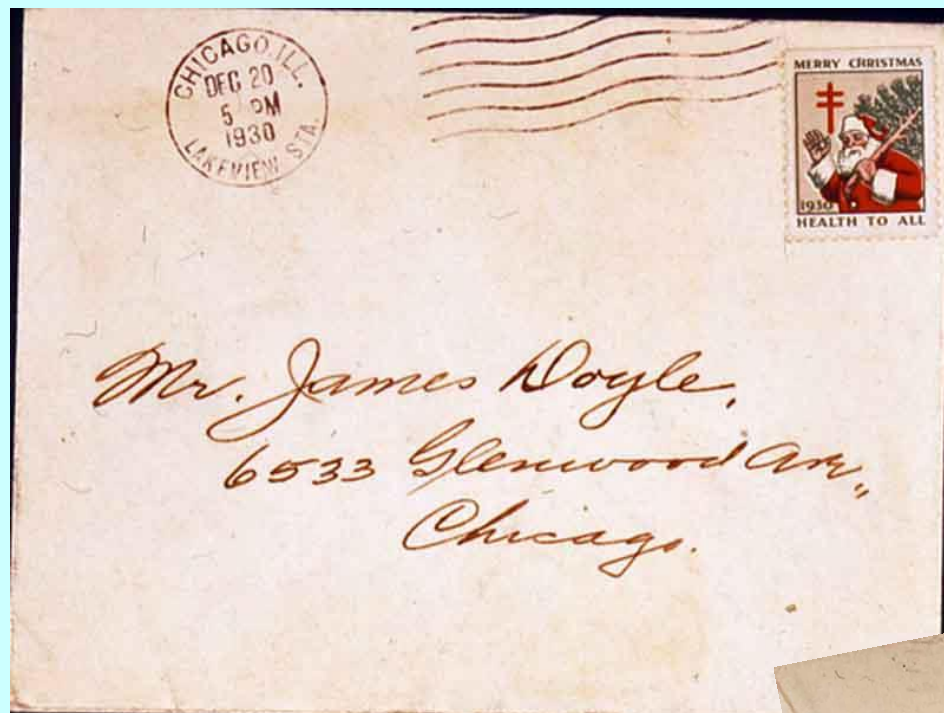 CHICAGO, ILL.
DEC 20
5 PM
1930
LAKEVIEW STA.
MERRY CHRISTMAS
1930
HEALTH TO ALL
Mr. James Doyle,
6533 Glenwood Ave.,
Chicago.